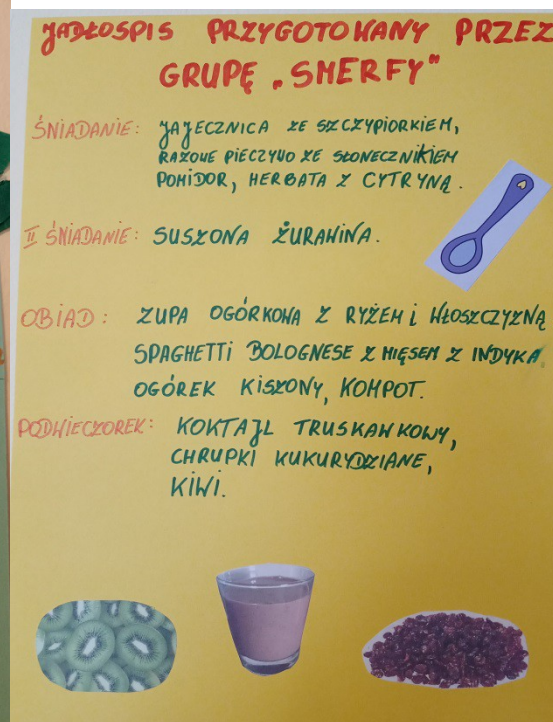 JADŁOSPIS PRZYGOTOWANY PRZEZ
GRUPĘ „SMERFY"
ŚNIADANIE: JAJECZNICA ZE SZCZYPIORKIEM,
RAZOWE PIECZYWO ZE SŁONECZNIKIEM
POMIDOR, HERBATA Z CYTRYNĄ.
II ŚNIADANIE: SUSZONA ŻURAWINA.
OBIAD: ZUPA OGÓRKOWA Z RYŻEM i WŁOSZCZYZNĄ
SPAGHETTi BOLOGNESE Z MIĘSEM Z INDYKA
OGÓREK KISZONY, KOMPOT.
PODWIECZOREK: KOKTAJL TRUSKAWKOWY,
CHRUPKI KUKURYDZIANE,
KIWI.